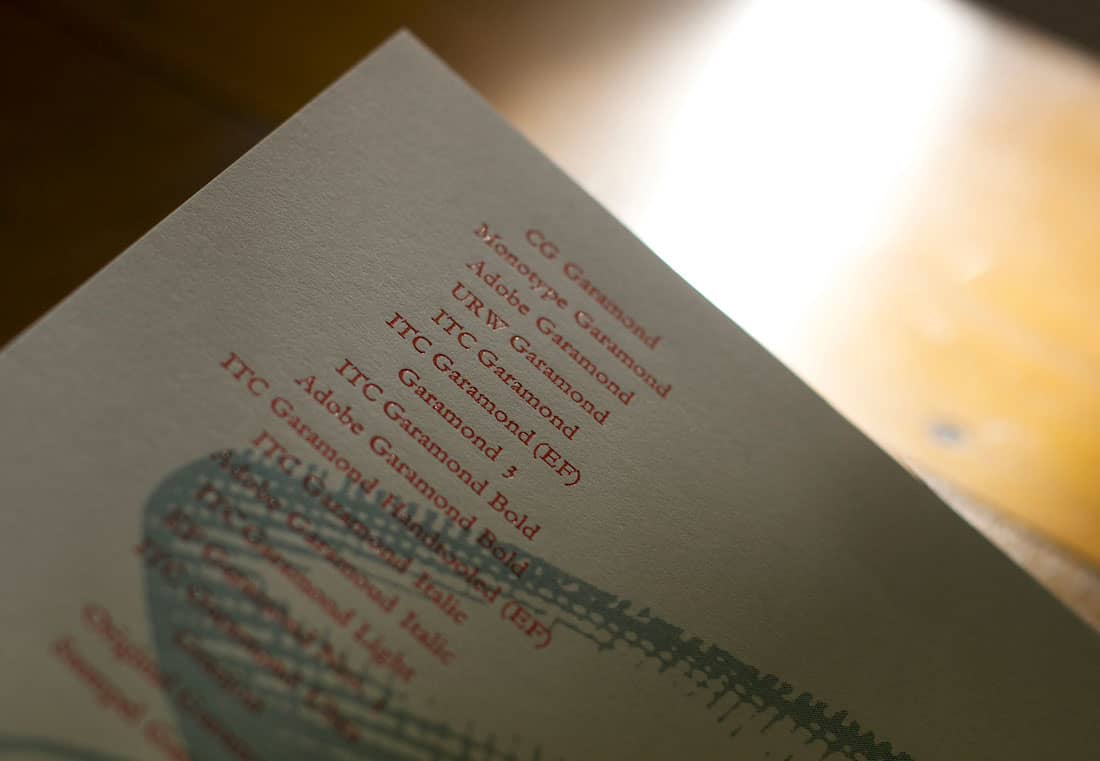 CG Garamond
Monotype Garamond
Adobe Garamond
URW Garamond
ITC Garamond
ITC Garamond (EF)
Garamond 3
ITC Garamond Bold
Adobe Garamond Bold
ITC Garamond Handtooled (EF)
ITC Garamond Italic
Adobe Garamond Italic
ITC Garamond Light
Original